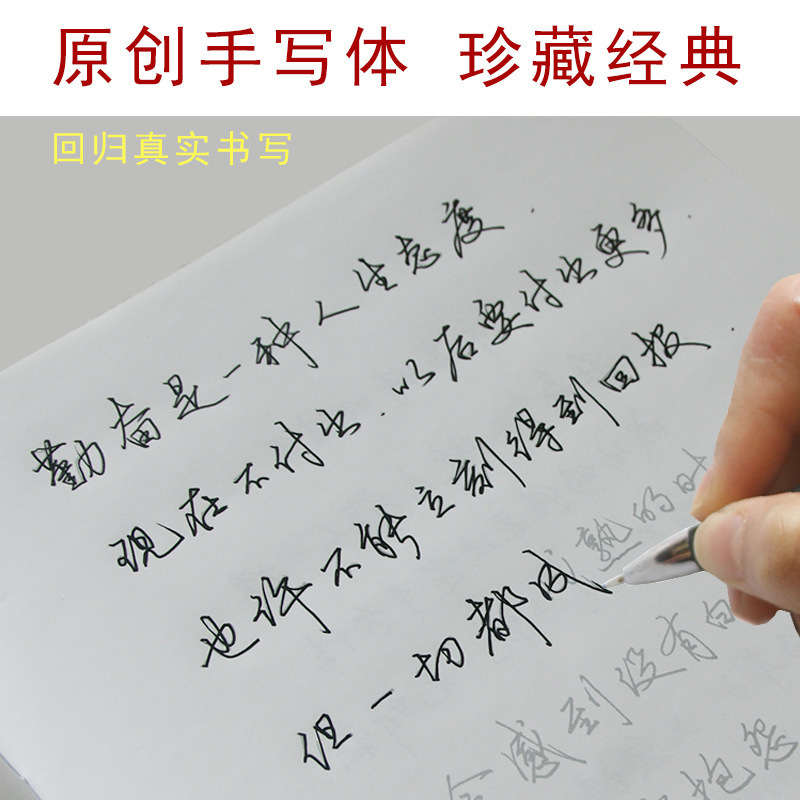 原创手写体 珍藏经典
回归真实书写
勤奋是一种人生态度.
现在不付出.以后要付出更多.
也许不能立刻得到回报.
但一切都成熟的时
会感到没有白
抱怨